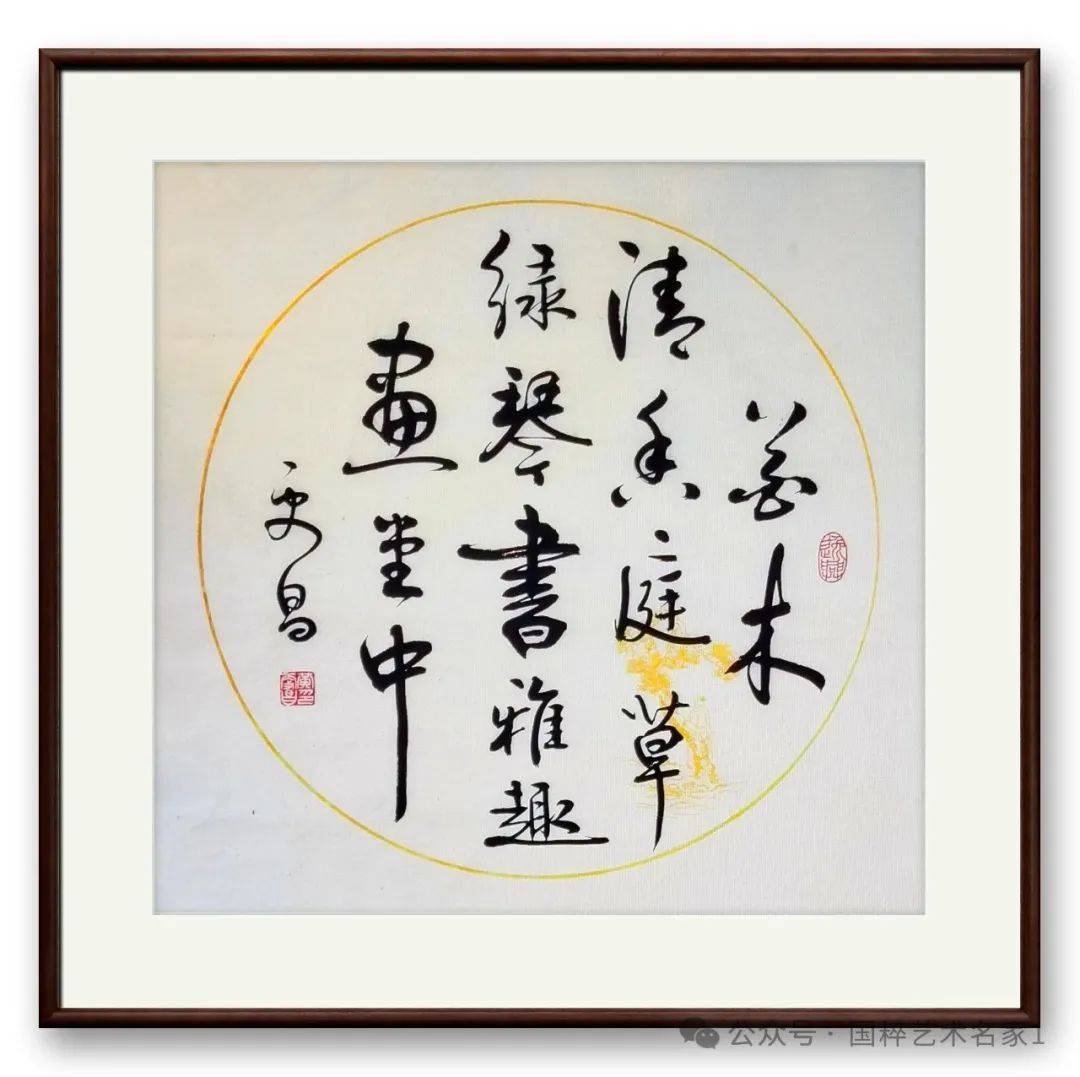 花木
清香庭草
绿琴書雅趣
畫堂中
昌
公众号 · 国粹艺术名家1